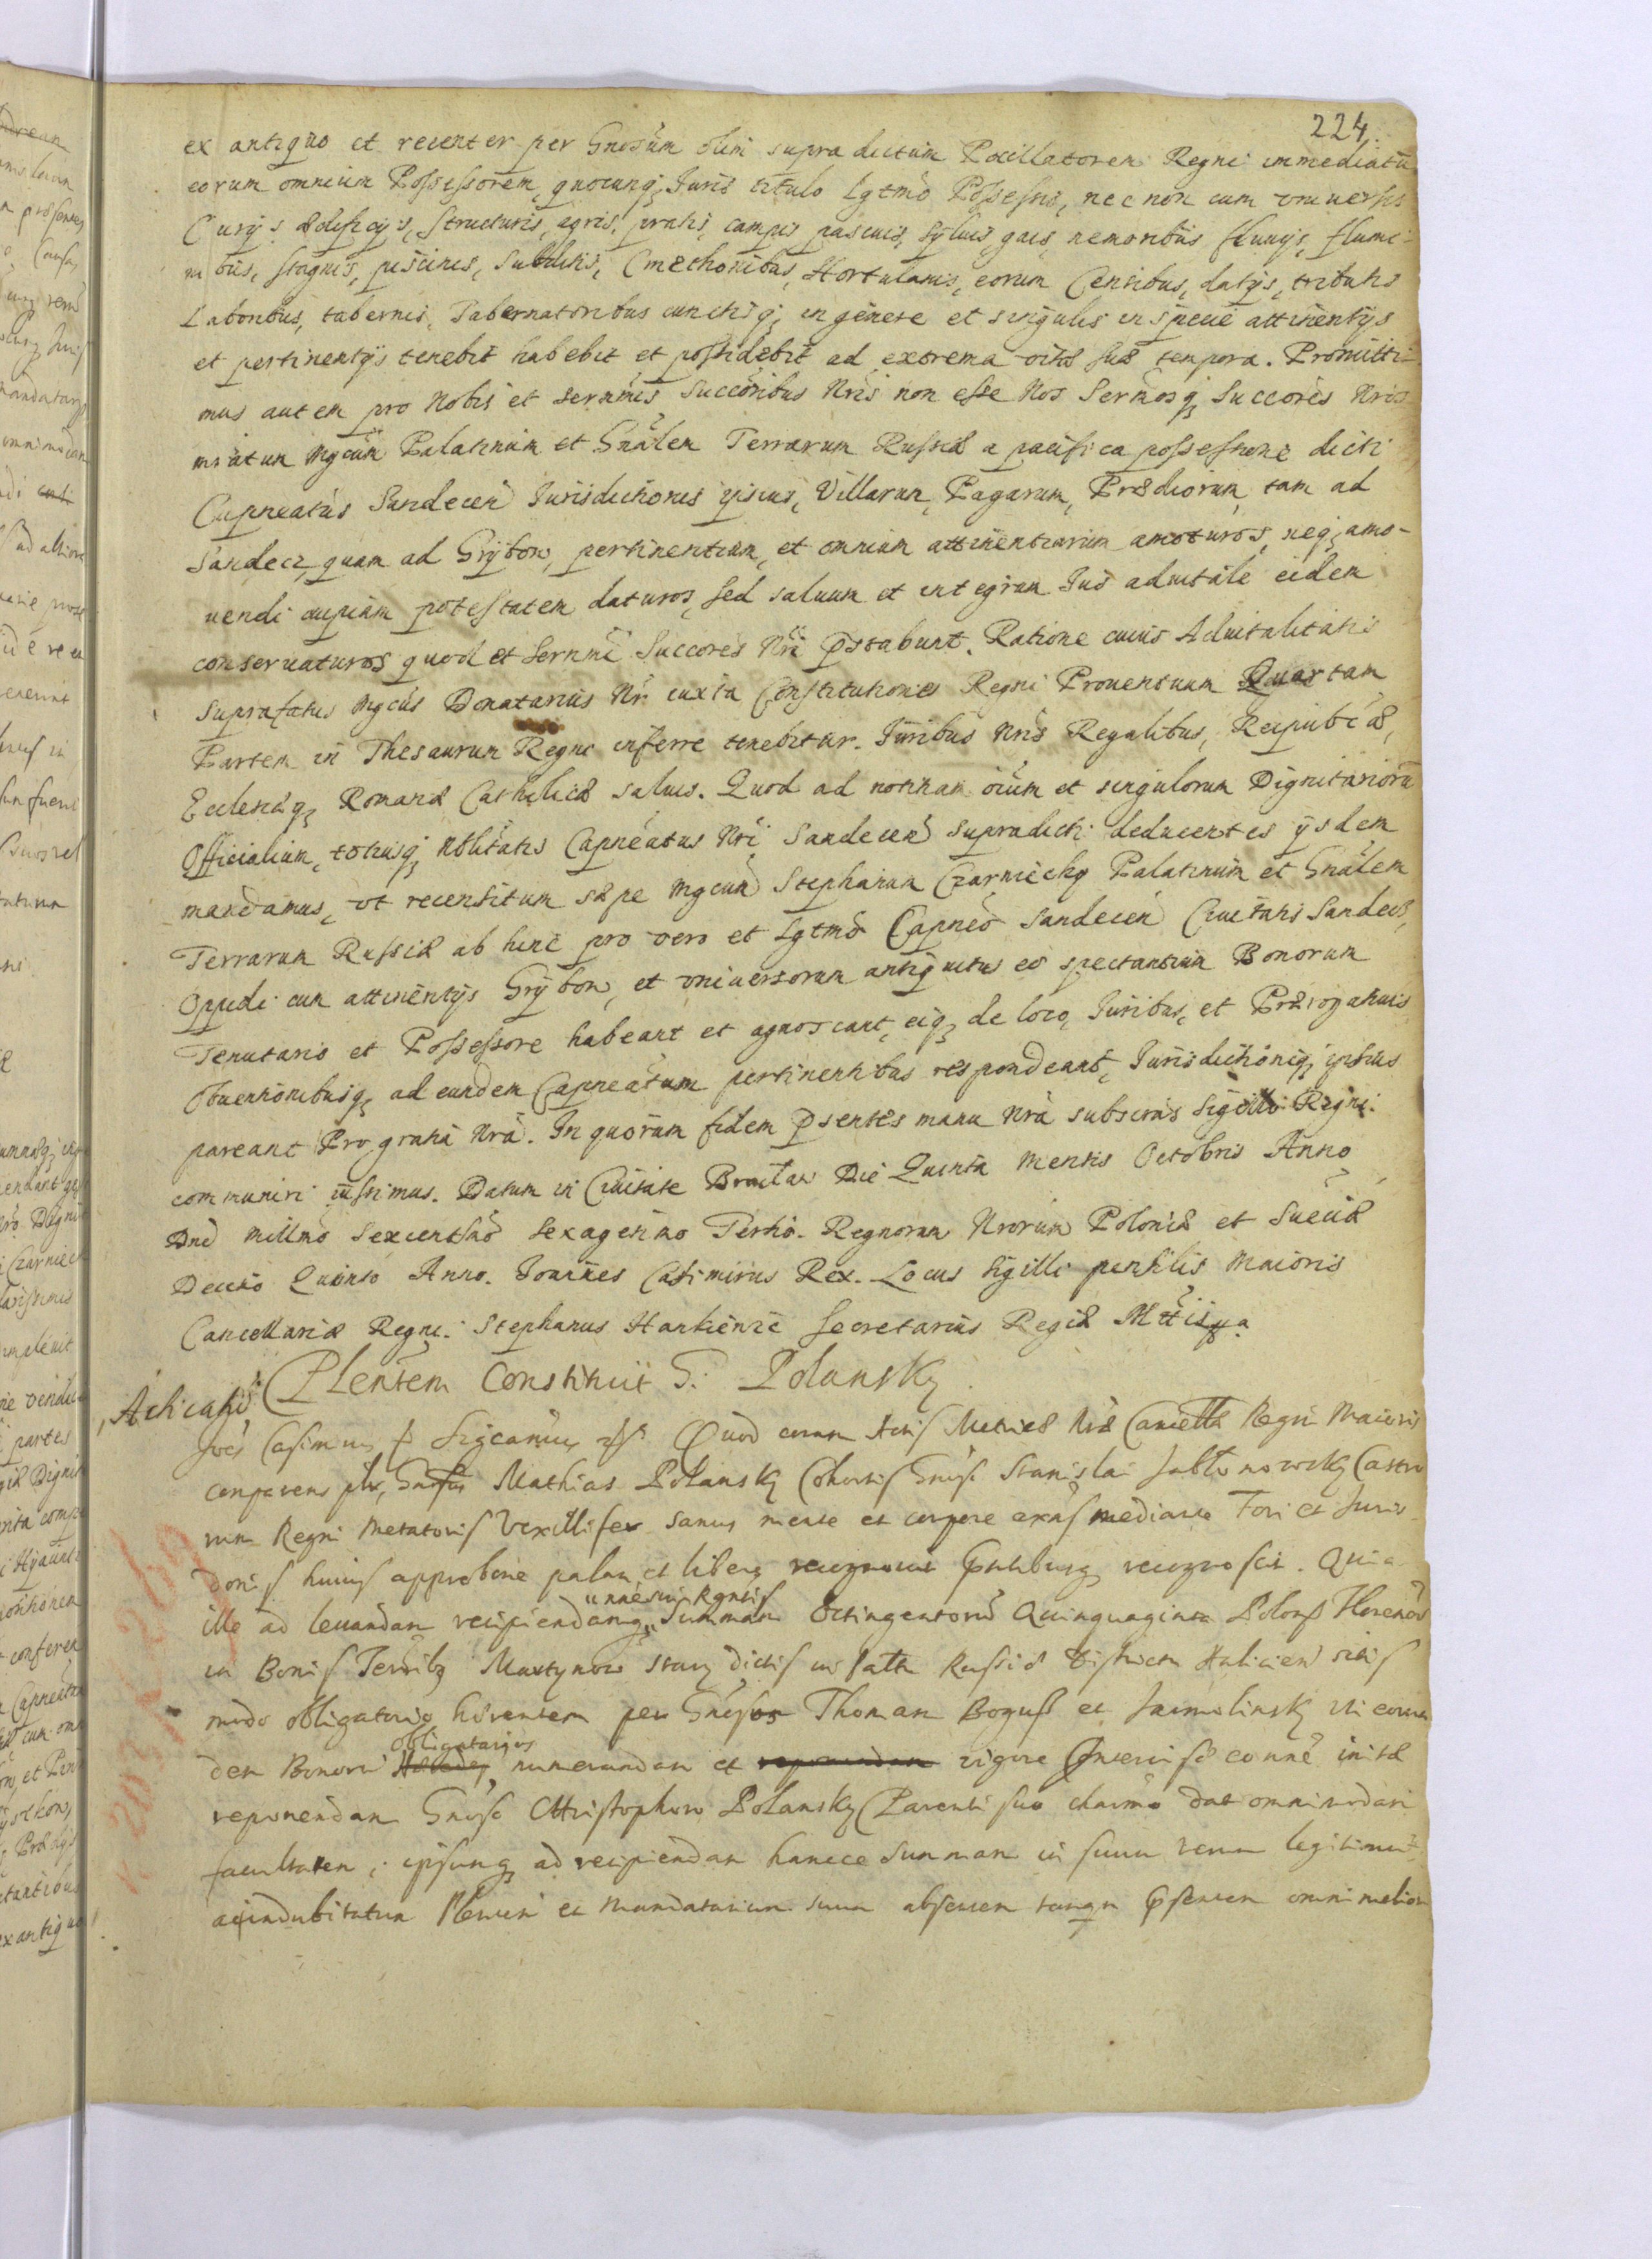 224.
ex antiquo et recenter per Gnosum olim supra dictum Pocillatorem Regni immediatū
eorum omnium Possessorem, quocunq; Iuris titulo Lgtmo Possessis, nec non cum vniuersis
Curijs ædificijs, structuris, agris, pratis, campis pascuis, syluis, gais, nemoribus fluuijs, flumi-
nibus, stagnis, piscinis, Subditis, Cmethonibus, Hortulanis, eorum Censibus, datijs, tributis
Laboribus, tabernis, Tabernatoribus cunctisq; in genere et singulis in specie attinentijs
et pertinentijs tenebit habebit et possidebit ad extrema vitæ suæ tempora. Promitti-
mus autem pro Nobis et sernmis Succoribus Nris non esse Nos Sermosq; Succores Nros
mratum Mgcum Palatinum et Gnalem Terrarum Russiæ a pacifica possessione dicti
Capneatus Sandecen Iurisdictionis ipsius, Villarum, Pagarum, Prædiorum, tam ad
Sandecz, quam ad Grybow, pertinentium, et omnium attinentiarum amoturos, neq; amo-
uendi cupiam potestatem daturos, sed saluum et integrum Ius aduitale eidem
conseruaturos quod et Sernmi Succores Nri pstabunt. Ratione cuius Aduitalitatis
suprafatus Mgcus Donatarius Nr iuxta Constitutiones Regni Prouentuum Quartam
Partem in Thesaurum Regni inferre tenebitur. Iuribus Nris Regalibus, Reipubcæ,
Ecclesiæq; Romanæ Catholicæ saluis. Quod ad notitiam oium et singulorum Dignitariorū
Officialium, totiusq; Nblitatis Capneatus Nri Sandecen supradicti deducentes ijsdem
mandamus, vt recensitum sæpe Mgcum Stephanum Czarniecky Palatinum et Gnalem
Terrarum Russiæ ab hinc pro vero et Lgtmo Capneo Sandecen Ciuitatis Sandecz,
Oppidi cum attinentijs Grybow, et vniuersorum antiquitus eo spectantium Bonorum
Tenutario et Possessore habeant et agnoscant, eiq; de loco, Iuribus, et Prærogatiuis
Obuentionibusq; ad eundem Capneatum pertinentibus respondeant, Iurisdictioniq; ipsius
pareant Pro gratia Nra. In quorum fidem psentes manu Nra subscras Sigillo Regni
communiri iussimus. Datum in Ciuitate Braclaw Die Quinta Mensis Octobris Anno
Dni Millmo Sexcentsmo Sexagesimo Tertio. Regnorum Nrorum Poloniæ et Sueciæ
Decimo Quinto Anno. Ioannes Casimirus Rex. Locus Sigilli pensilis Maioris
Cancellariæ Regni. Stephanus Hankiewic Secretarius Regiæ Mttis
Plentem Constituit G. Polansky
Acticatio
Joēs Casimirus Sigcamus Quod coram Actis Metrices Nræ Cancell Regni Maioris
comparens plr, Gnosus Mathias Polansky Cohortis Gnosi Stanislai Jabłonowsky Castro
rum Regni Metatoris Vexillifer sanus mente et corpore existens mediante Fori et Juris
donis huius approbone palam et libere recognouit Gntibusq; recognoscit. Quia
ille ad leuandam recipiendamq; Summam Octingentorū Quinquaginta Polons Florenorū
in Bonis Terribz Martynow Stary dictis in Pattu Russiæ Districtu Haliciens sitis
modo obligatorio hærentem per Gnosos Thomam Boguss et Jarmolinsky vti eorun
obligatarios
dem Bonorū numerandam et vigore initæ
reponendam Gnoso Christophoro Polansky Parenti suo charmo dat omnimodam
facultatem, ipsumq; ad recipiendam hancce Summam in suum verum legitimū
ac indubitatum Plentem et Mandatarium suum absentem tanqm Psentem omni meliori